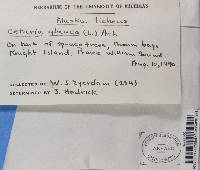 HERBARIUM OF THE UNIVERSITY OF MICHIGAN
Alaska lichens
Cetraria glauca (L.) Ach
On bark of spruce trees, Thumb bay,
Knight Island, Prince William Sound
Aug. 10, 1940
COLLECTED BY W. J. Eyerdam (294)
DETERMINED BY J. Hedrick